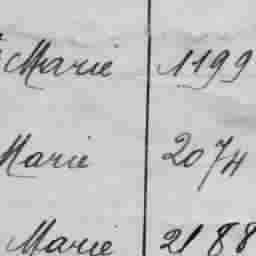 Marie 1199
Marie 2074
Marie 2188